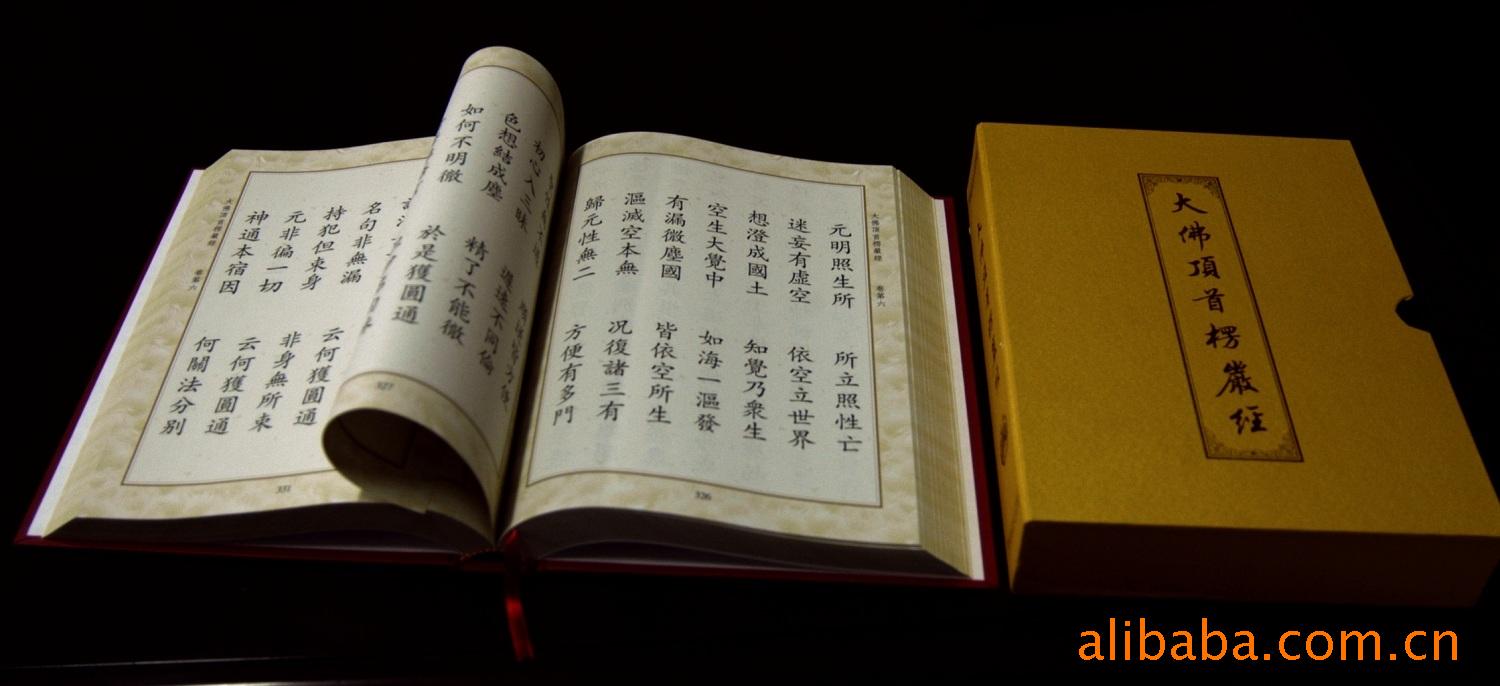 大佛頂首楞嚴經 卷第六
元明照生所 所立照性亡
迷妄有虛空 依空立世界
想澄成國土 知覺乃衆生
空生大覺中 如海一漚發
有漏微塵國 皆依空所生
漚滅空本無 況復諸三有
歸元性無二 方便有多門
326
初心入三昧 遲速不同倫
色想結成塵 精了不能徹
如何不明徹 於是獲圓通
327
名句非無漏 云何獲圓通
持犯但束身 非身無所束
元非徧一切 云何獲圓通
神通本宿因 何關法分別
大佛頂首楞嚴經 卷第六
331
大佛頂首楞嚴經
alibaba.com.cn